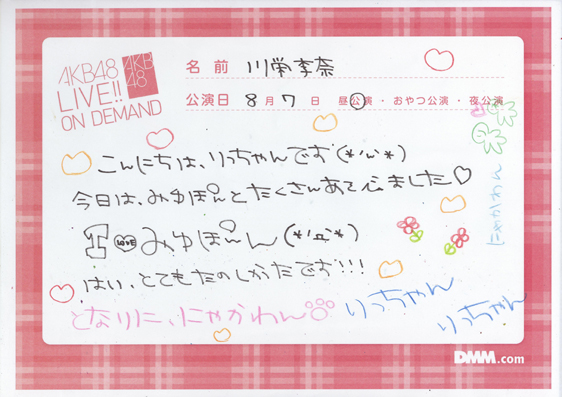 AKB48
LIVE!!
ON DEMAND
AKB
48
名前 川栄李奈
公演日 8月7日 昼公演・おやつ公演・夜公演
こんにちは、りっちゃんです(*'ω'*)
今日は、みゆぽんとたくさんあそびました♡
I LOVE みゆぽーん(*'д'*)
はい、とてもたのしかったです!!!
となりに、にゃかわん
りっちゃん
りっちゃん
にゃかわん
DMM.com